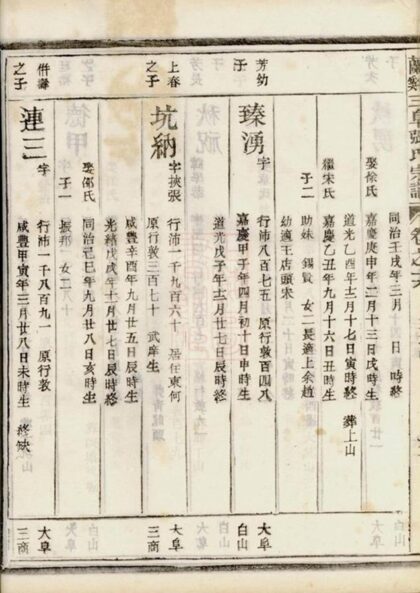 張氏宗譜
同治壬戌年三月 日 時終
娶徐氏 嘉慶庚申年二月十三日戌時生
道光乙酉年十二月十七日寅時終 葬上山
繼宋氏 嘉慶乙丑年九月十六日丑時生
子二 助妹 錫賢 女二長適上余趙
幼適王店頭宋
芳幼 臻湧 字 行沛八百七五 原行敦百四八 大阜
子 嘉慶甲子年四月初十日申時生 白山
道光戊子年十二月廿七日辰時終
上春 坑納 字挾張 行沛一千九百六十 居住東河 大阜
之子 原行敦三百七十 武庠生 三商
咸豐辛酉年九月廿五日辰時生
光緒戊戌年十一月廿七日辰時終
娶邵氏 同治己巳年九月廿八日亥時生
子一 振邦 女二
併壽 連三 字 行沛一千八百九一 原行敦 大阜
之子 咸豐甲寅年三月廿八日未時生 終缺 三商